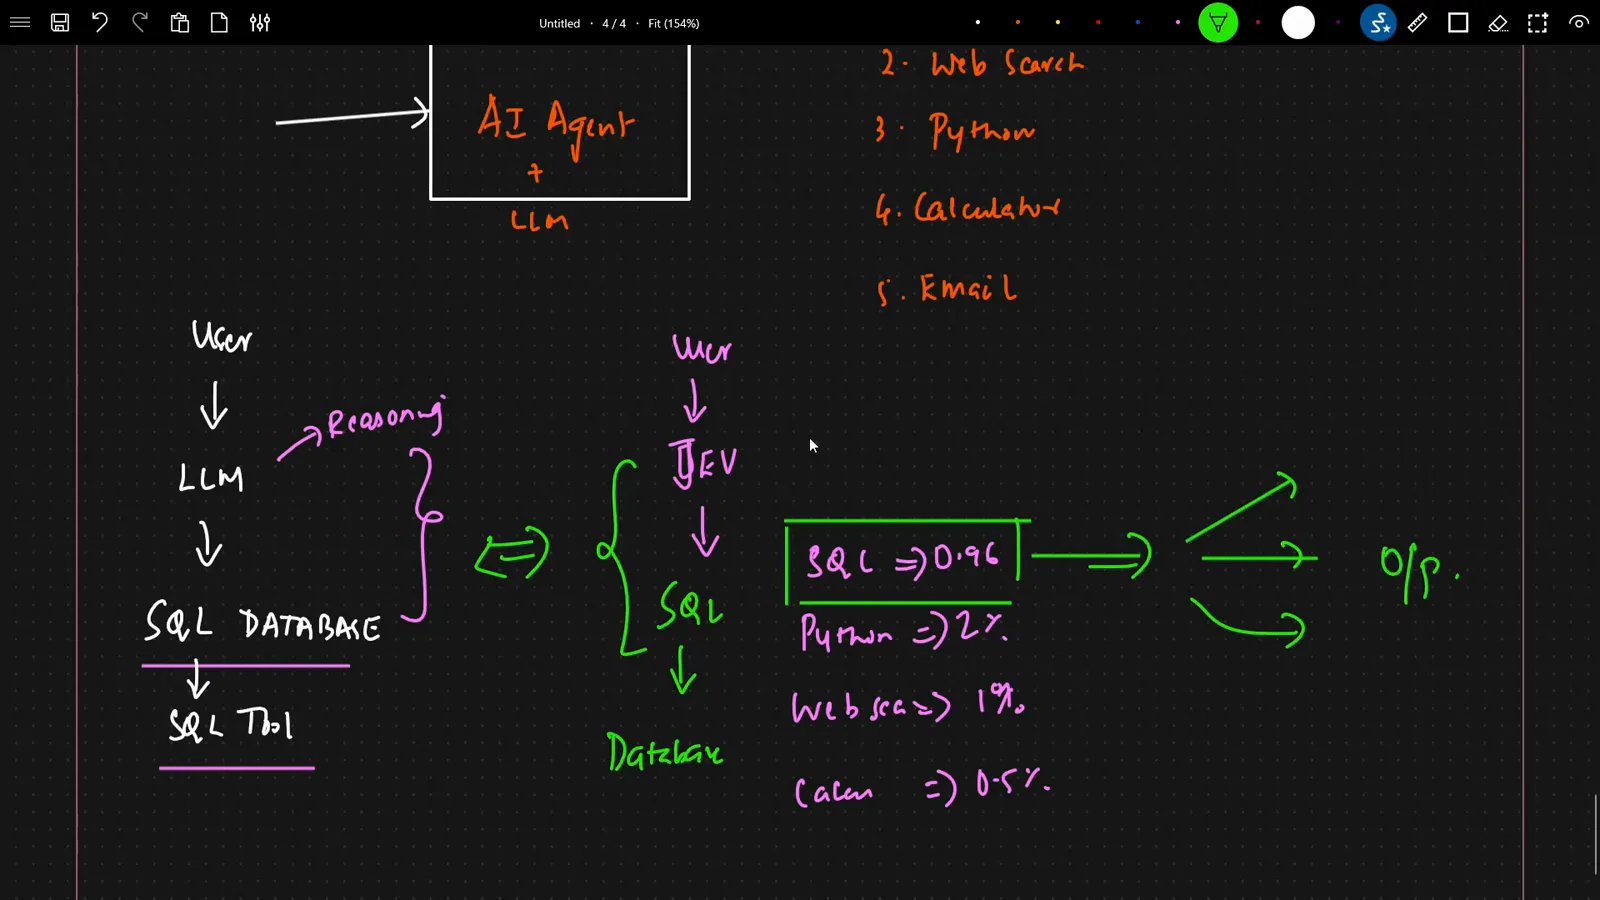 Untitled • 4 / 4 • Fit (154%)
2. Web Search
AI Agent
3. Python
+
LLM
4. Calculator
5. Email
User
User
Reasoning
LLM
JEV
SQL => 0.96
O/p.
SQL
SQL DATABASE
Python => 2%.
SQL Tool
Web sea => 1%.
Database
=> 0.5%.